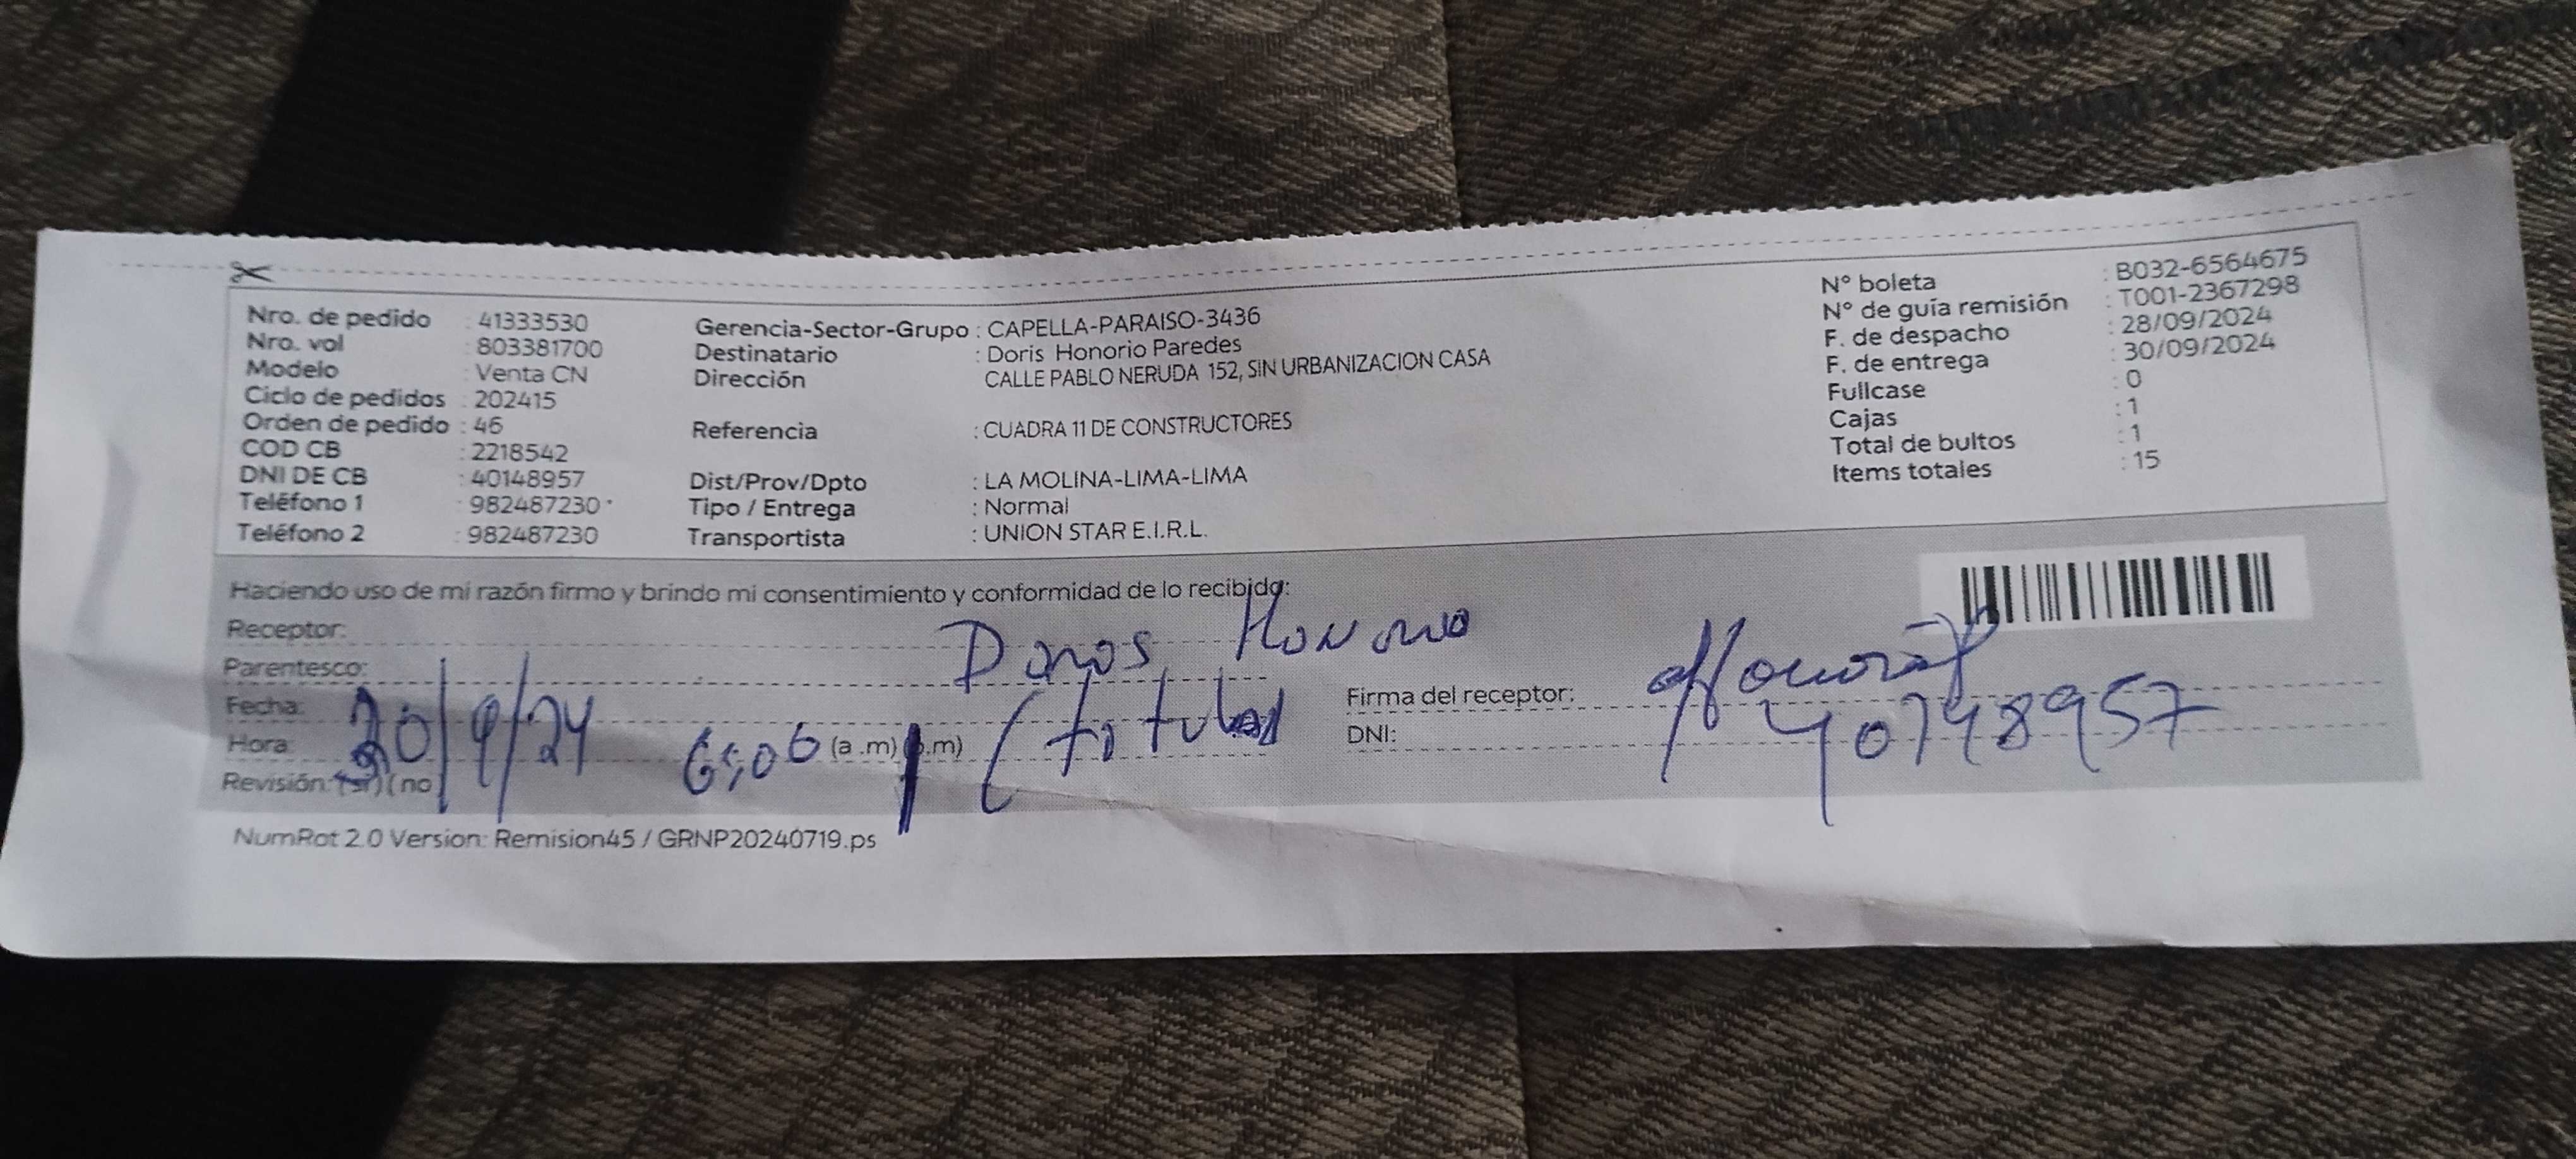 Nro. de pedido : 41333530
Nro. vol : 803381700
Modelo : Venta CN
Ciclo de pedidos : 202415
Orden de pedido : 46
COD CB : 2218542
DNI DE CB : 40148957
Teléfono 1 : 982487230
Teléfono 2 : 982487230
Gerencia-Sector-Grupo : CAPELLA-PARAISO-3436
Destinatario : Doris Honorio Paredes
Dirección CALLE PABLO NERUDA 152, SIN URBANIZACION CASA
Referencia : CUADRA 11 DE CONSTRUCTORES
Dist/Prov/Dpto : LA MOLINA-LIMA-LIMA
Tipo / Entrega : Normal
Transportista : UNION STAR E.I.R.L.
N° boleta : B032-6564675
N° de guía remisión : T001-2367298
F. de despacho : 28/09/2024
F. de entrega : 30/09/2024
Fullcase : 0
Cajas : 1
Total de bultos : 1
Items totales : 15
Haciendo uso de mi razón firmo y brindo mi consentimiento y conformidad de lo recibido:
Receptor: Honorio
Parentesco:
Fecha: 30/9/24
Hora: 6:06 (a .m) (p.m) (titular
Revisión: (si) ( no
Firma del receptor:
DNI: 40148957
NumRot 2.0 Version: Remision45 / GRNP20240719.ps